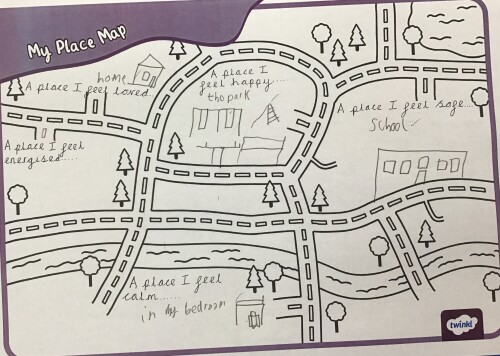 My Place Map
home
A place I feel loved...
A place I
feel happy....
the park
A place I feel safe....
School
A place I feel
energised....
A place I feel
calm......
in my bedroom
twinkl